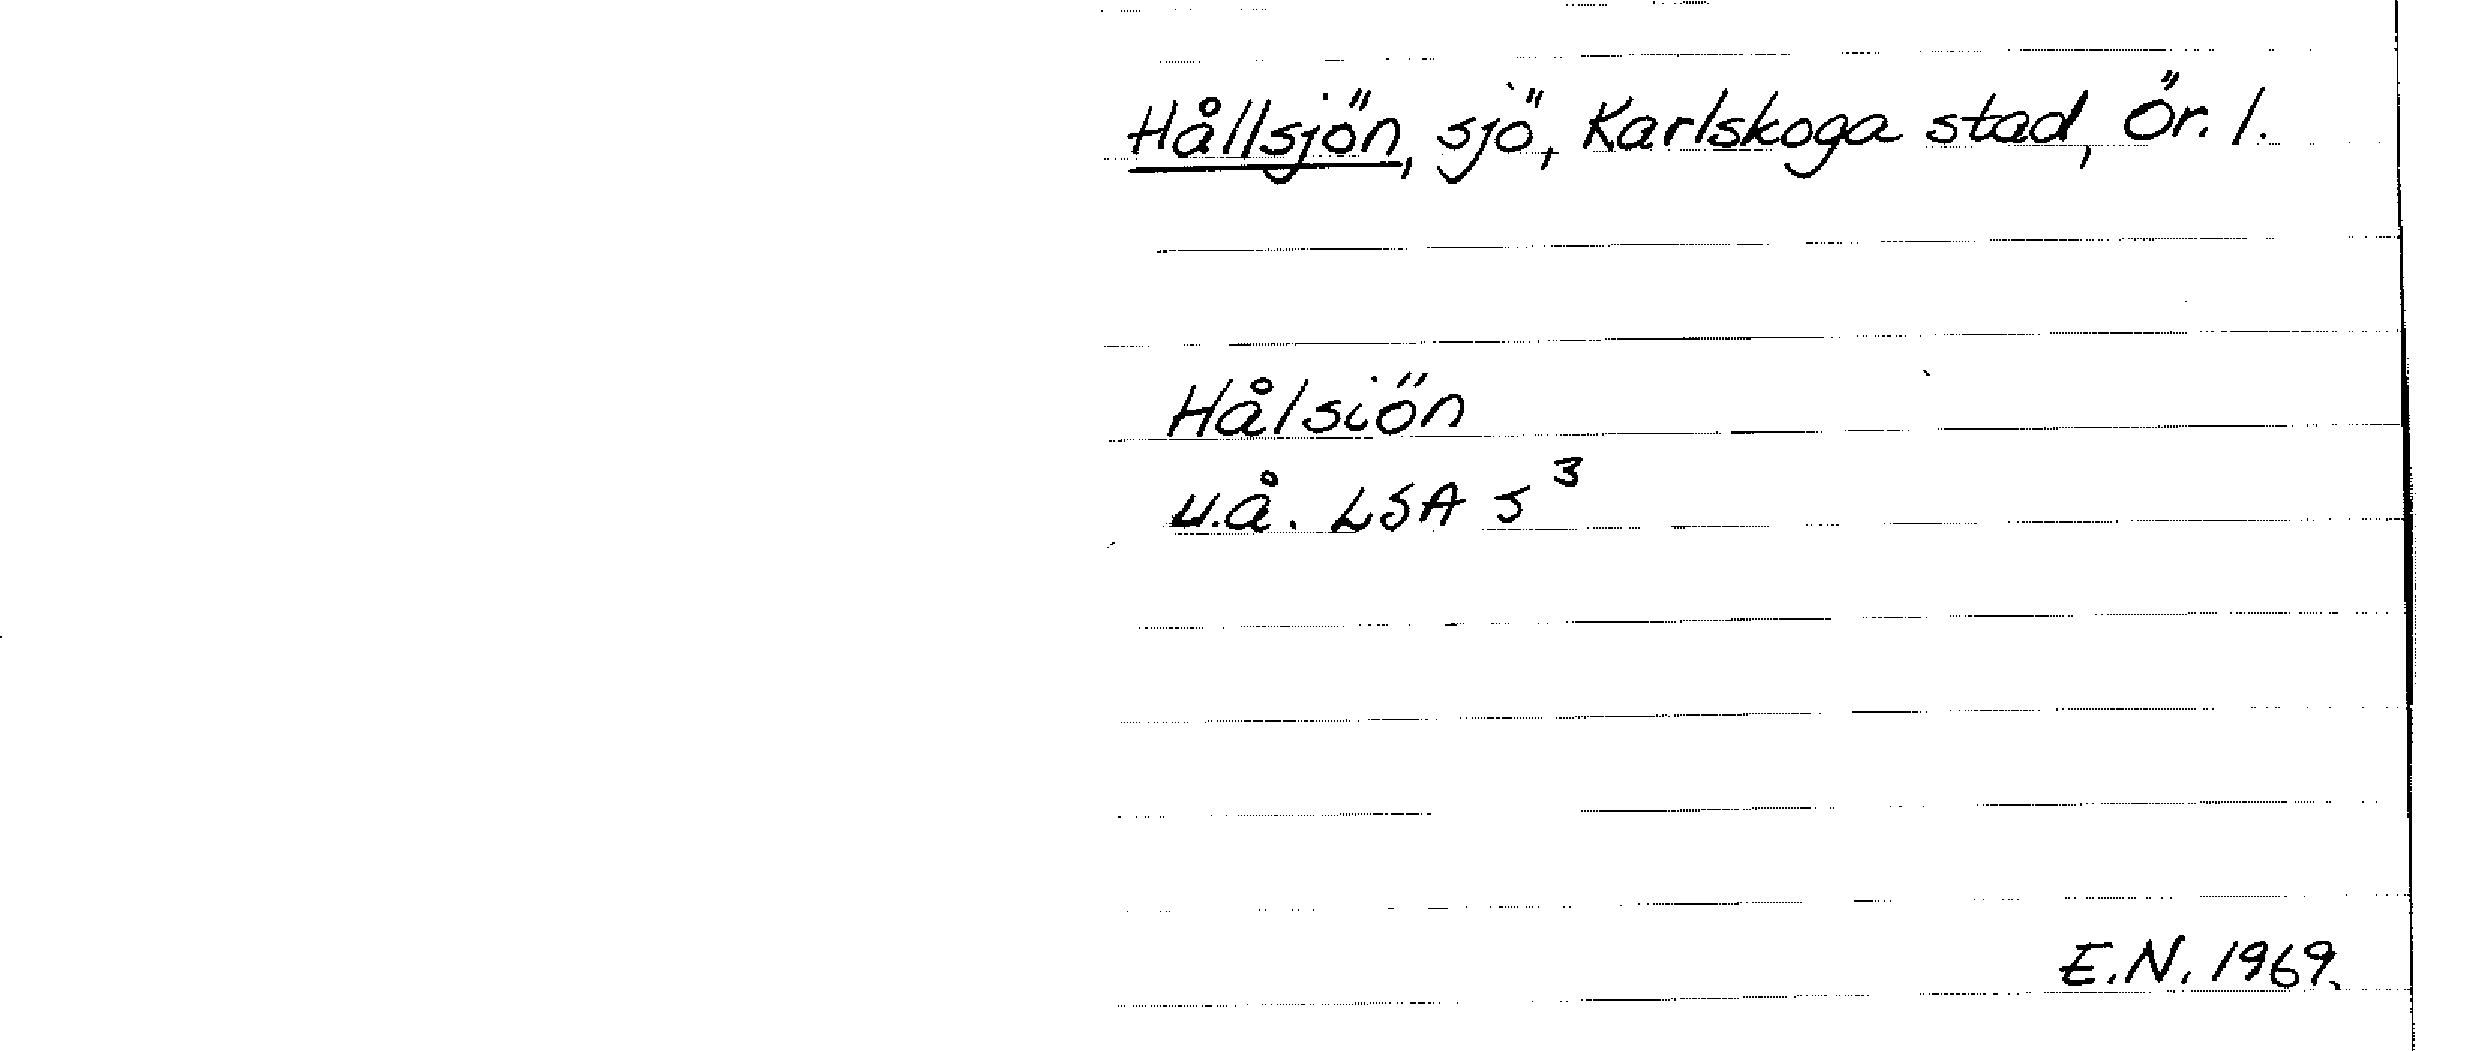 Hållsjön, sjö, Karlskoga stad, Ör. l.
Hålsiön
u.å. LSA S³
E.N. 1969.